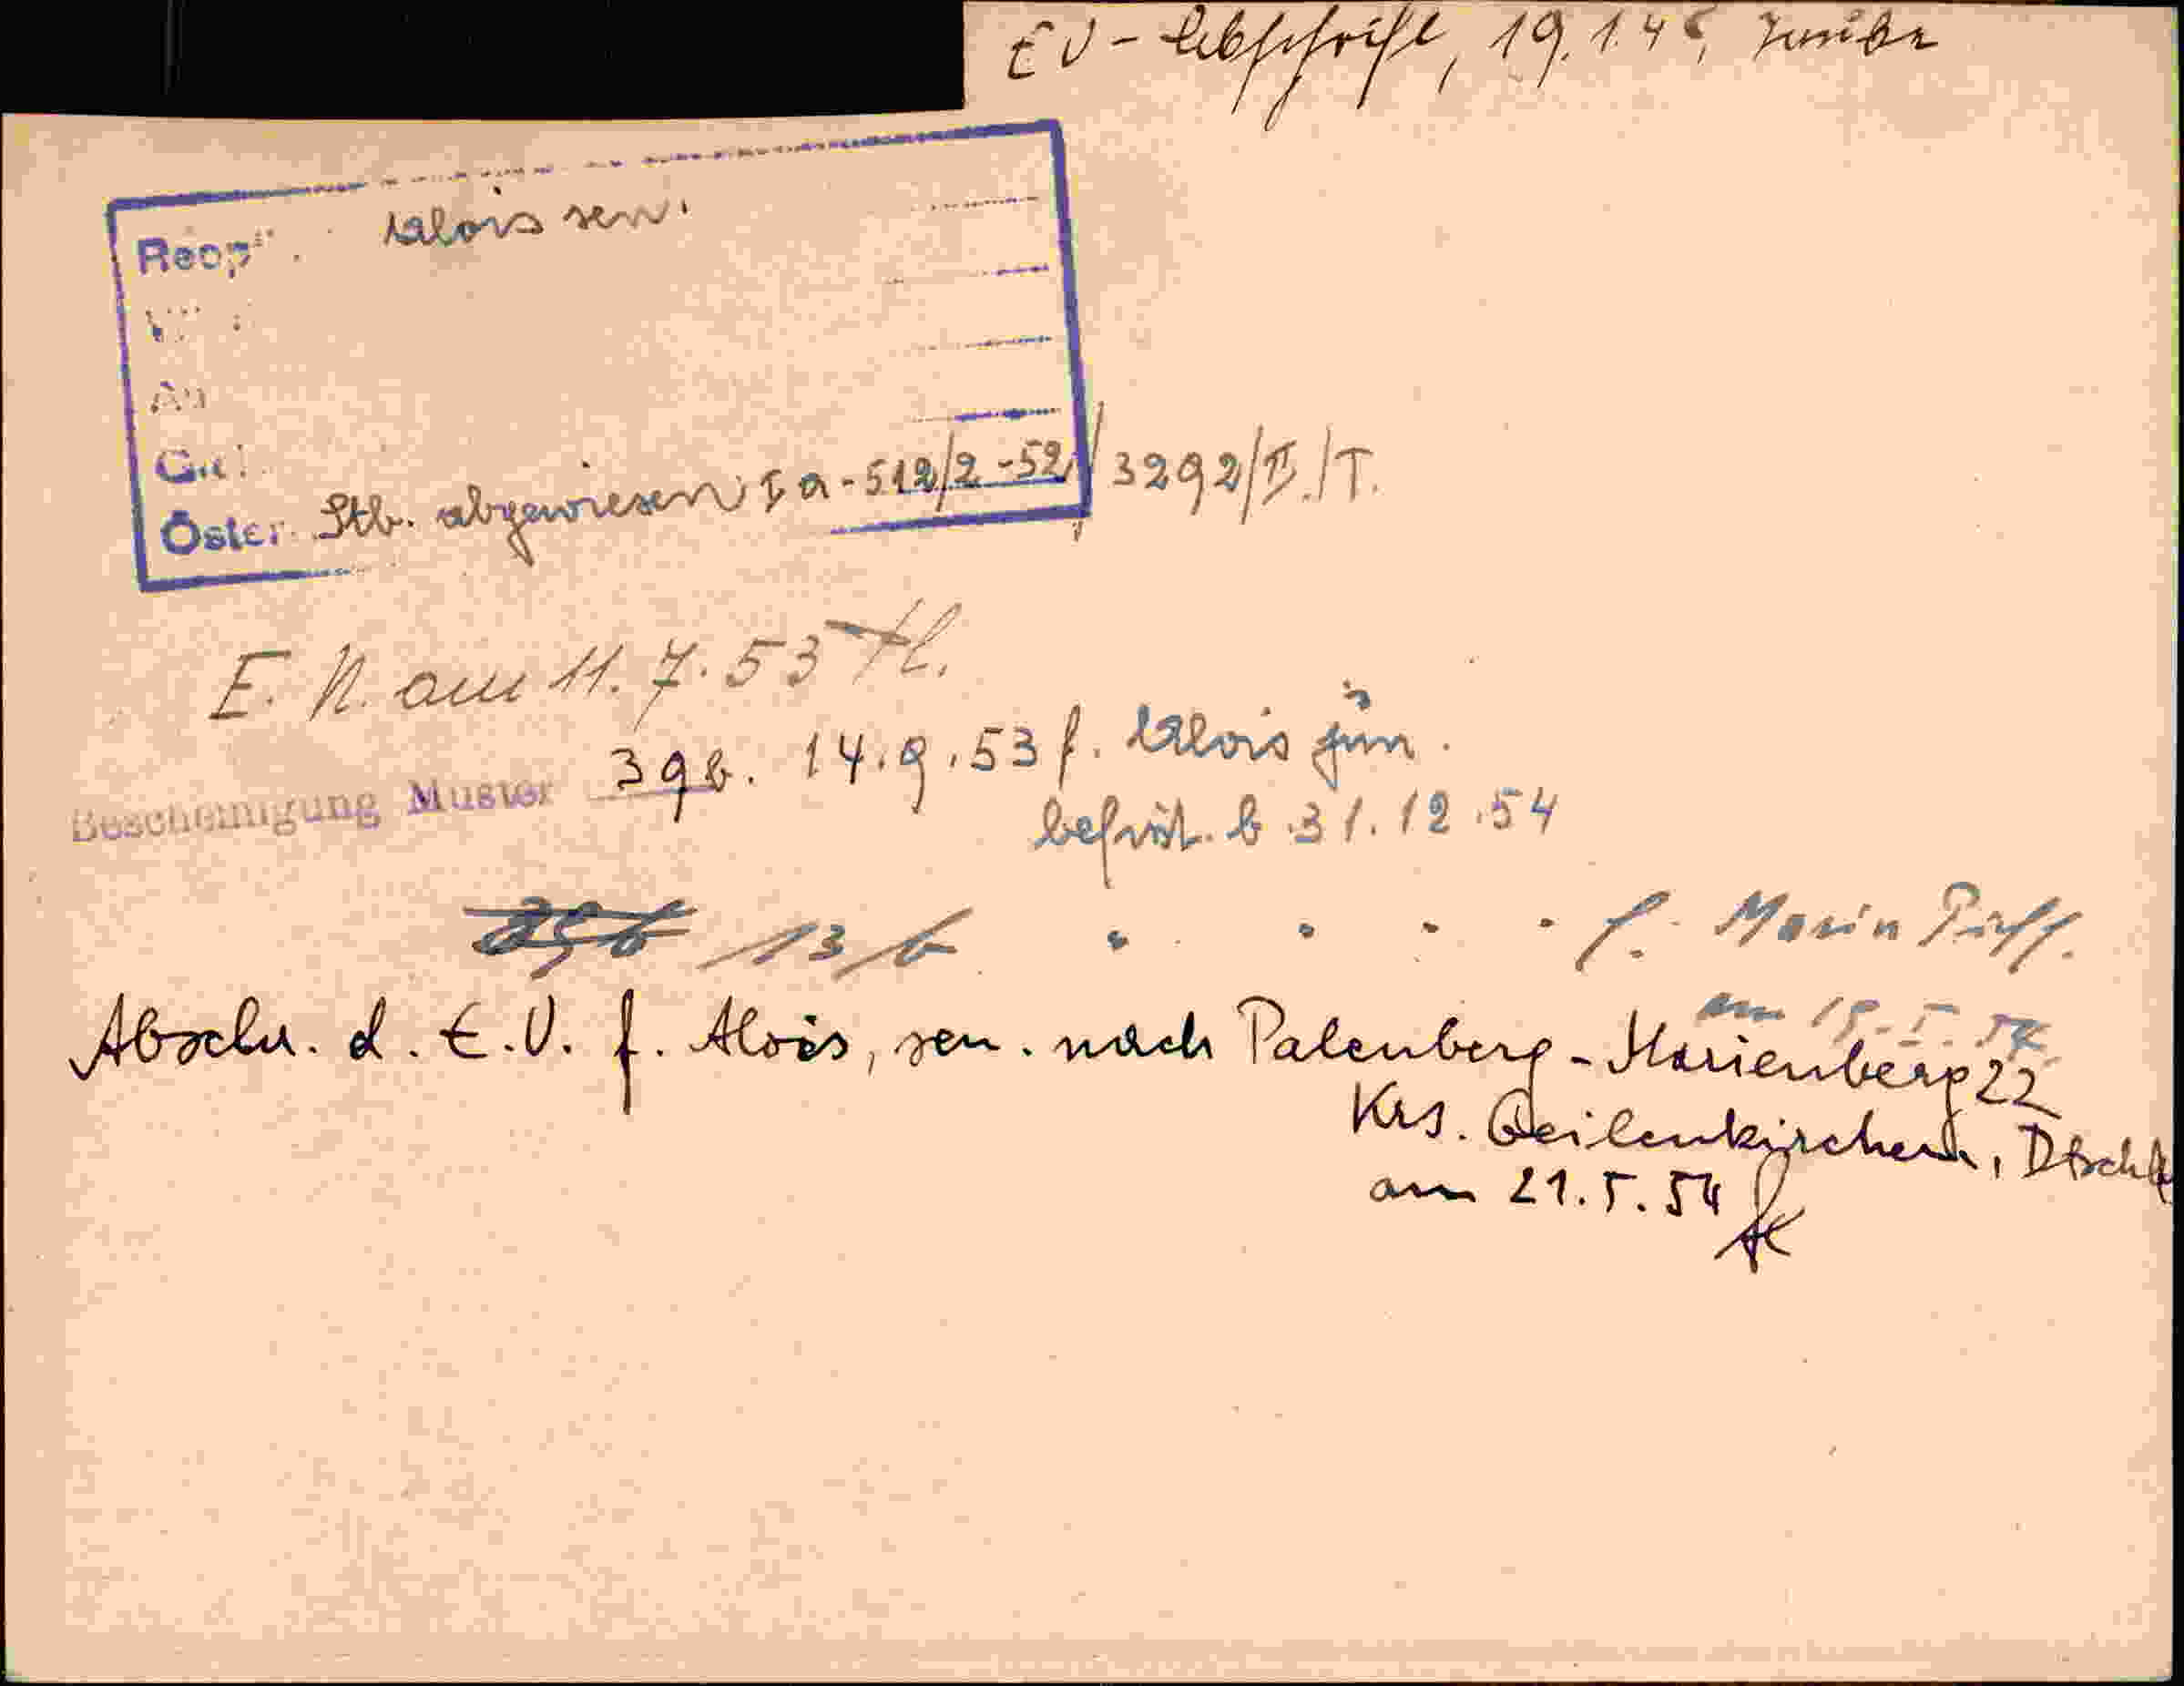 EV-Abschrift, 19.1.46,
Reopt. Alois sen.
Öster. Stb. abgewiesen Ia-512/2-52/3292/II./T.
E. V. am 11.7.53
Bescheinigung Muster 39b. 14.9.53 f. Alois jun.
befrist. b. 31.12.54
39b 13/b " " " " f. Maria
am 19.5.54
Abschr. d. E.V. f. Alois, sen. nach Palenberg-Marienberg 22
Krs. Geilenkirchen, Dtschl
am 21.5.54